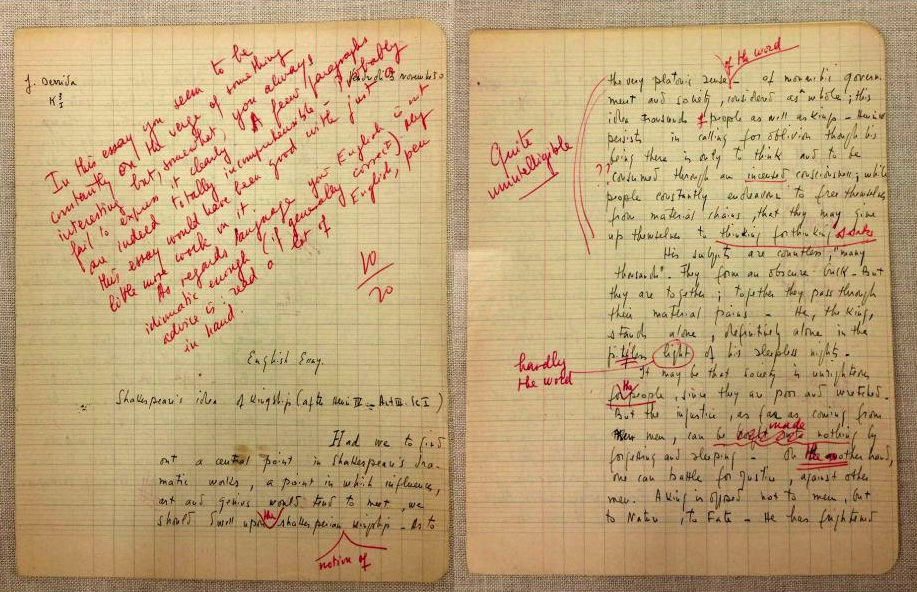 J. Derrida
K 3/I
Vendredi 3 novembre 50
In this essay you seem to be
constantly on the verge of something
interesting but, somewhat, you always
fail to express it clearly. A few paragraphs
are indeed totally incomprehensible - Probably
this essay would have been good with just a
little more work in it
As regards language your English is not
idiomatic enough (if generally correct). My
advice is: read a lot of English, pen
in hand.
10
20
English Essay.
Shakespeare's idea of kingship (after Henri IV - Act III. Sc I)
Had we to find
out a central point in Shakespeare's dra-
matic works, a point in which influences,
art and genius would tend to meet, we
should dwell upon the shakesperian kingship - As to
notion of
of the word
the very platonic sense - of monarchic govern-
ment and society, considered as a whole; this
idea transcends people as well as kings -
persists in calling for oblivion though his
being there is only to think and to be
?? consumed through an incensed consciousness; while
people constantly endeavour to free themselves
from material chains, that they may give
up themselves to thinking for thinking's sake
Quite
unintelligible
His subjects are countless, "many
thousands". They form an obscure But
they are together; together they pass through
their material pains - He, the king,
stands alone, definitively alone in the
pitiless light of his sleepless nights -
hardly
the word
It may be that society is unrighteous
for the people, since they are poor and wretched.
But the injustice, as far as coming from
men, can be made nothing by
forgetting and sleeping - On the another hand,
one can battle for justice, against other
men. A king is opposed not to men, but
to Nature, to Fate - He has frightened